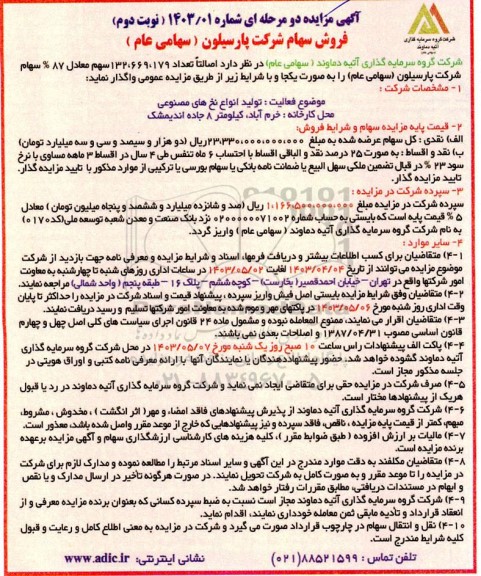 آگهی مزایده دو مرحله ای شماره ۱۴۰۳/۰۱ (نوبت دوم)
فروش سهام شرکت پارسیلون (سهامی عام)
شرکت گروه سرمایه گذاری
آتیه دماوند
شرکت گروه سرمایه گذاری آتیه دماوند (سهامی عام) در نظر دارد اصالتاً تعداد ۱۳۲،۶۶۹،۱۷۹ سهم معادل ۸۷ % سهام
شرکت پارسیلون (سهامی عام) را به صورت یکجا و با شرایط زیر از طریق مزایده عمومی واگذار نماید:
۱- مشخصات شرکت :
موضوع فعالیت : تولید انواع نخ های مصنوعی
محل کارخانه : خرم آباد، کیلومتر ۸ جاده اندیمشک
۲- قیمت پایه مزایده سهام و شرایط فروش:
الف) نقدی : کل سهام عرضه شده به مبلغ ۲۳،۳۳۰،۰۰۰،۰۰۰،۰۰۰ ریال (دو هزار و سیصد و سی و سه میلیارد تومان)
ب) نقد و اقساط : به صورت ۲۵ درصد نقد و الباقی اقساط با احتساب ۶ ماه تنفس طی ۴ سال در اقساط ۳ ماهه مساوی با نرخ
سود ۲۳ % در قبال تضمین ملکی سهل البیع یا ضمانت نامه بانکی یا سهام بورسی یا ترکیبی از موارد مذکور با تایید مزایده گذار.
تایید مزایده گذار.
۳- سپرده شرکت در مزایده :
سپرده شرکت در مزایده مبلغ ۱،۱۶۶،۵۰۰،۰۰۰،۰۰۰ ریال (صد و شانزده میلیارد و ششصد و پنجاه میلیون تومان) معادل
۵ % قیمت پایه است که بایستی به حساب شماره ۰۲۰۰۰۰۰۰۷۱۰۰۲ نزد بانک صنعت و معدن شعبه توسعه ملی(کد ۰۱۷۰)
به نام شرکت گروه سرمایه گذاری آتیه دماوند (سهامی عام) واریز گردد.
۴- سایر موارد :
۴-۱) متقاضیان برای کسب اطلاعات بیشتر و دریافت فرمها، اسناد و شرایط مزایده و معرفی نامه جهت بازدید از شرکت
موضوع مزایده می توانند از تاریخ ۱۴۰۳/۰۴/۰۴ لغایت ۱۴۰۳/۰۵/۰۲ در ساعات اداری روزهای شنبه تا چهارشنبه به معاونت
امور شرکتها واقع در تهران – خیابان احمدقصیر( بخارست) – کوچه ششم – پلاک ۱۶ – طبقه پنجم (واحد شمالی) مراجعه نمایند.
۴-۲) متقاضیان وفق شرایط مزایده بایستی اصل فیش واریز سپرده ، پیشنهاد قیمت و اسناد شرکت در مزایده را حداکثر تا پایان
وقت اداری روز شنبه مورخ ۱۴۰۳/۰۵/۰۶ در پاکتهای مهر و موم شده به معاونت امور شرکتها تسلیم و رسید دریافت نمایند.
۴-۳) متقاضیان اقرار می نمایند، ممنوع المعامله نبوده و مشمول ماده ۲۴ قانون اجرای سیاست های کلی اصل چهل و چهارم
قانون اساسی مصوب ۱۳۸۷/۰۴/۳۱ و اصلاحات بعدی نمی باشند.
۴-۴) پاکت الف پیشنهادات راس ساعت ۱۰ صبح روز یک شنبه مورخ ۱۴۰۳/۰۵/۰۷ در محل شرکت گروه سرمایه گذاری
آتیه دماوند گشوده خواهد شد. حضور پیشنهاددهندگان یا نمایندگان آنها با ارائه معرفی نامه کتبی و اوراق هویتی در
جلسه مذکور مجاز است.
۴-۵) صرف شرکت در مزایده حقی برای متقاضی ایجاد نمی نماید و شرکت گروه سرمایه گذاری آتیه دماوند در رد یا قبول
هریک از پیشنهادها مختار است.
۴-۶) شرکت گروه سرمایه گذاری آتیه دماوند از پذیرش پیشنهادهای فاقد امضاء و مهر( اثر انگشت ) ، مخدوش ، مشروط،
مبهم، کمتر از قیمت پایه مزایده ، ناقص، فاقد سپرده و نیز پیشنهادهایی که خارج از موعد مقرر واصل شده باشد، معذور است.
۴-۷) مالیات بر ارزش افزوده ( طبق ضوابط مقرر )، کلیه هزینه های کارشناسی ارزشگذاری سهام و آگهی مزایده برعهده
برنده مزایده است.
۴-۸) متقاضیان مکلفند به دقت موارد مندرج در این آگهی و سایر اسناد مرتبط را مطالعه نموده و مدارک لازم برای شرکت
در مزایده را تا موعد مقرر و به صورت کامل به شرکت تحویل نمایند. در صورت هرگونه تأخیر در ارسال مدارک و یا نقص
و ابهام در مستندات دریافتی، مطابق مقررات رفتار خواهد شد.
۴-۹) شرکت گروه سرمایه گذاری آتیه دماوند مجاز است نسبت به ضبط سپرده کسانی که بعنوان برنده مزایده معرفی و از
انعقاد قرارداد و تأدیه مابقی ثمن معامله خودداری نمایند، اقدام نماید.
۴-۱۰) نقل و انتقال سهام در چارچوب قرارداد صورت می گیرد و شرکت در مزایده به معنی اطلاع کامل و رعایت و قبول
کلیه شرایط مندرج است.
تلفن تماس : ۸۸۵۲۱۵۹۹(۰۲۱)
نشانی اینترنتی: www.adic.ir